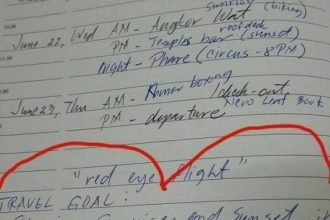 sunrise
June 22, Wed AM - Angkor Wat (biking)
roofdeck
PM - Temples bar (sunset)
Night - Phare (Circus - 8PM)
June 23, Thu AM - Khmer boxing / check-out
New Leaf Book
PM - departure
"red eye flight"
TRAVEL GOAL:
Sunrise and Sunset